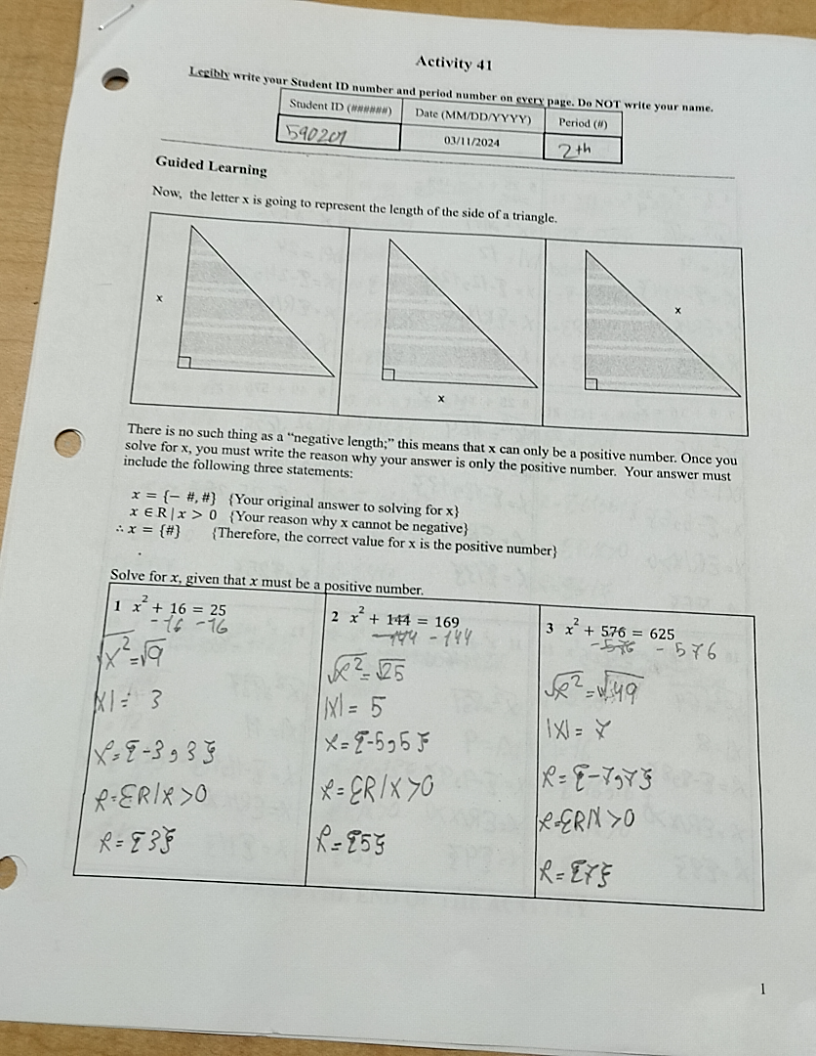 Activity 41
Legibly write your Student ID number and period number on every page. Do NOT write your name.
Student ID (######) Date (MM/DD/YYYY) Period (#)
590201 03/11/2024 2th
Guided Learning
Now, the letter x is going to represent the length of the side of a triangle.
x
x
x
There is no such thing as a “negative length;” this means that x can only be a positive number. Once you
solve for x, you must write the reason why your answer is only the positive number. Your answer must
include the following three statements:
x = {− #, #} {Your original answer to solving for x}
x ∈ R | x > 0 {Your reason why x cannot be negative}
∴ x = {#} {Therefore, the correct value for x is the positive number}
Solve for x, given that x must be a positive number.
1 x² + 16 = 25
-16 -16
√x² = √9
|x| = 3
x = {-3, 3}
x = ER/x > 0
x = {3}
2 x² + 144 = 169
-144 -144
√x² = √25
|x| = 5
x = {-5, 5}
x = ER/x > 0
x = {5}
3 x² + 576 = 625
-576 - 576
√x² = √49
|x| = 7
x = {-7, 7}
x = ER/x > 0
x = {7}
1